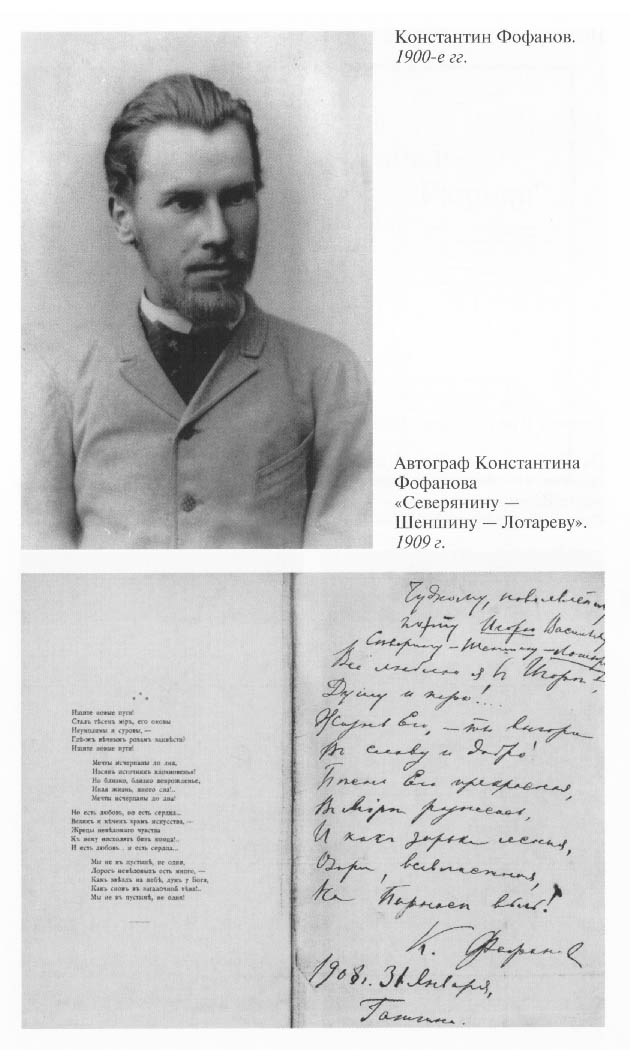 Константин Фофанов.
1900-е гг.
Автограф Константина
Фофанова
«Северянину —
Шеншину — Лотареву».
1909 г.
* * *
Ищите новые пути!
Сталъ тѣсенъ міръ, его оковы
Неумолимы и суровы,—
Гдѣ-жъ вѣчнымъ розамъ зацвѣсти?
Ищите новые пути!
Мечты исчерпаны до дна,
Изсякъ источникъ вдохновенья!
Но близко, близко возрожденье,
Иная жизнь, иного сна!..
Мечты исчерпаны до дна!
Но есть любовь, но есть сердца...
Великъ и вѣченъ храмъ искусства,—
Жрецы невѣдомаго чувства
Къ нему нисходятъ безъ конца!..
И есть любовь.. и есть сердца...
Мы не въ пустынѣ, не одни,
Дорогъ невѣдомыхъ есть много,—
Какъ звѣздъ на небѣ, думъ у Бога,
Какъ сновъ въ загадочной тѣни!..
Мы не въ пустынѣ, не одни!
Чудному,
поэту Игорю
Шеншину
Все люблю я в Игоре,
Душу и перо!...
Жизнь Его, — ты
В славу и добро!
Песни Его прекрасная,
В Міре
И как зорька
Озари, всевластная,
На Парнасе
К. Фофанов
1908 г. 31 Января,
Гатчина.